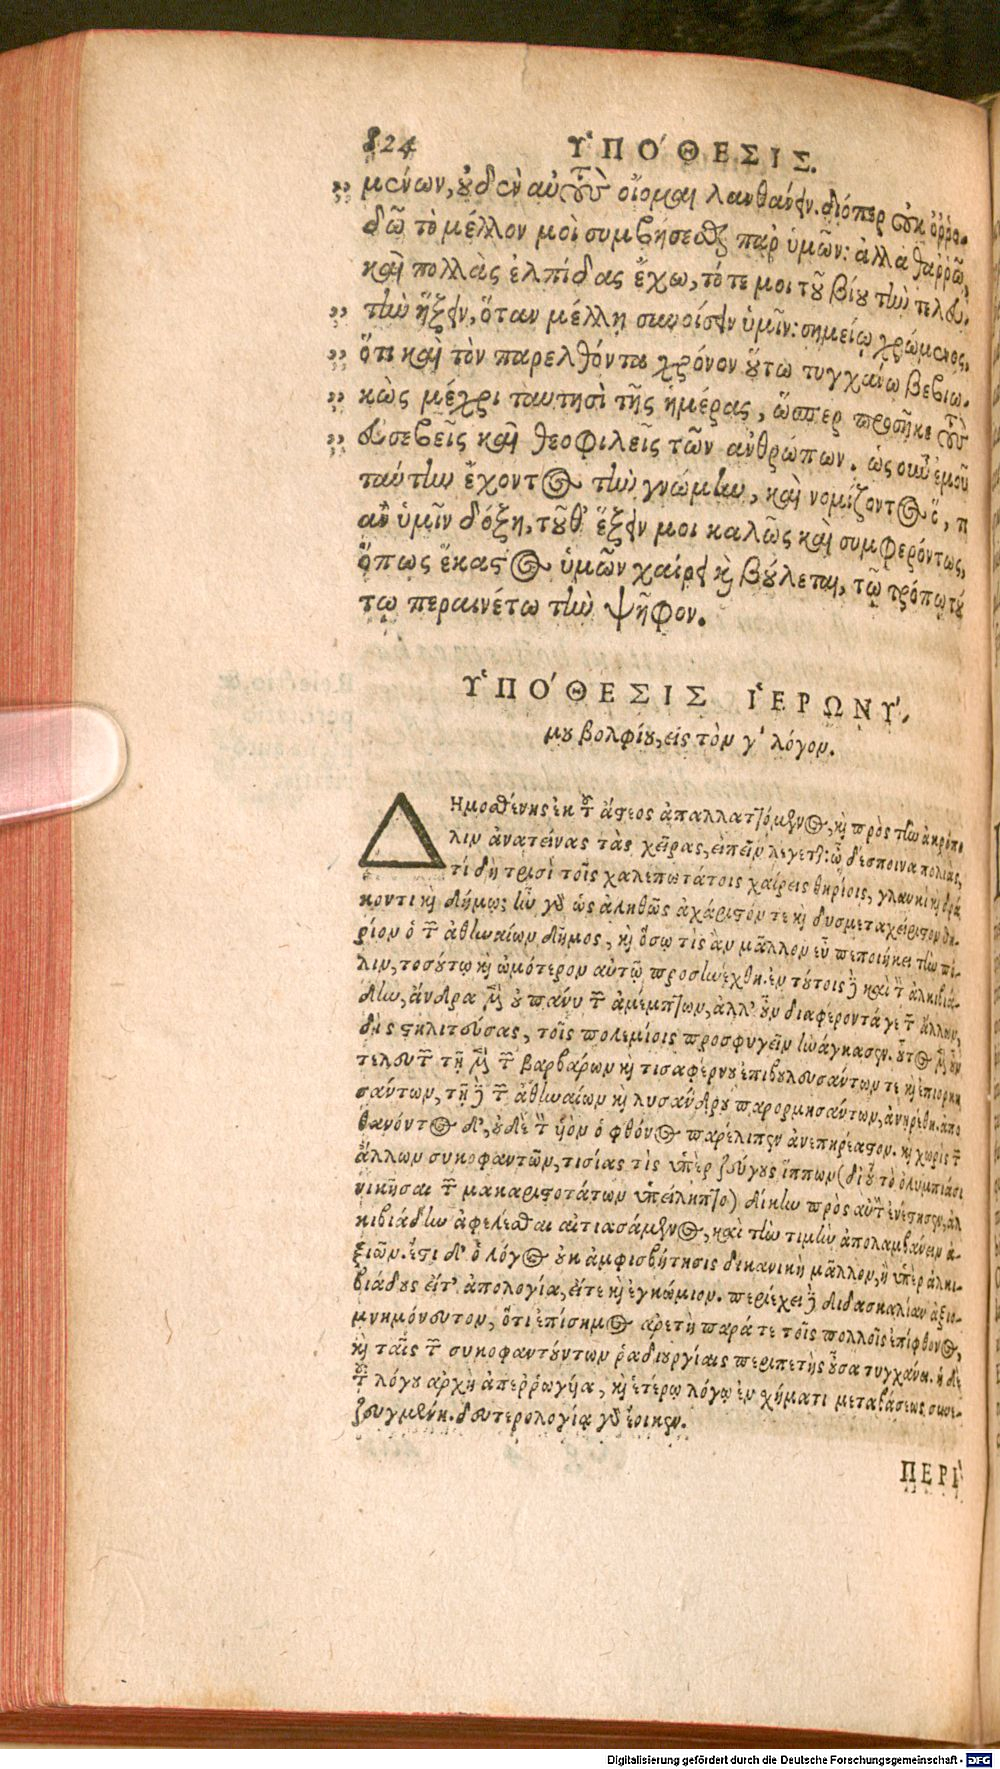 824 ΥΠΟ´ΘΕΣΙΣ.
„ μένων, οὐδὲν αὐτὸν οἴομαι λανθάνειν. διόπερ οὐκ ὀῤῥω-
δῶ τὸ μέλλον μοι συμβήσεσθαι παρ' ὑμῶν: ἀλλὰ θαῤῥῶ,
καὶ πολλὰς ἐλπίδας ἔχω, τότε μοι τοῦ βίου τὴν τελευ-
„ τὴν ἥξειν, ὅταν μέλλῃ συνοίσειν ὑμῖν: σημείῳ χρώμενος,
„ ὅτι καὶ τὸν παρελθόντα χρόνον οὕτω τυγχάνω βεβιω-
„ κὼς μέχρι ταυτησὶ τῆς ἡμέρας, ὥσπερ προσῆκε τοὺς
„ εὐσεβεῖς καὶ θεοφιλεῖς τῶν ἀνθρώπων. ὡς οὖν ἐμοῦ
ταύτην ἔχοντος τὴν γνώμην, καὶ νομίζοντος ὅ, τι
ἂν ὑμῖν δόξῃ, τοῦθ' ἕξειν μοι καλῶς καὶ συμφερόντως,
ὅπως ἕκαστος ὑμῶν χαίρει καὶ βούλεται, τῷ τρόπῳ τού
τῳ περαινέτω τὴν ψῆφον.
ΥΠΟ´ΘΕΣΙΣ ἹΕΡΩΝΥ´-
μου βολφίου, εἰς τὸν γ' λόγον.
ΔΗμοσθένης ἐκ τοῦ ἄστεος ἀπαλλαττόμενος, καὶ πρὸς τὴν ἀκρόπο
λιν ἀνατείνας τὰς χεῖρας, εἰπεῖν λέγεται: ὦ δέσποινα πολιὰς,
τί δὴ τρισὶ τοῖς χαλεπωτάτοις χαίρεις θηρίοις, γλαυκὶ καὶ δρά
κοντι καὶ δήμῳ; ἦν γὰρ ὡς ἀληθῶς ἀχάριστόν τε καὶ δυσμεταχείριστον θη-
ρίον ὁ τῶν ἀθηναίων δῆμος, καὶ ὅσῳ τὶς ἂν μᾶλλον εὖ πεποιήκει τὴν πό-
λιν, τοσούτῳ καὶ ὠμότερον αὐτῷ προσηνέχθη. ἐν τούτοις δὲ καὶ τὸν ἀλκιβιά-
δην, ἄνδρα μὲν οὐ πάνυ τῶν ἀμέμπτων, ἀλλ' οὖν διαφέροντά γε τῶν ἄλλων,
δὶς στηλιτεύσας, τοῖς πολεμίοις προσφυγεῖν ἠνάγκασεν. οὗτος μὲν οὖν
τελευτῶν τῇ μὲν τῶν βαρβάρων καὶ τισαφέρνου ἐπιβουλευσάντων τε καὶ ἐπιορκη
σάντων, τῇ δὲ τῶν ἀθηναίων καὶ λυσάνδρου παρορμησάντων, ἀνῃρέθη. ἀπο
θανόντος δ', οὐδὲ τὸν ὑὸν ὁ φθόνος παρέλιπεν ἀνεπηρέαστον. καὶ χωρὶς τῶν
ἄλλων συκοφαντῶν, τισίας τὶς ὑπὲρ ζεύγους ἵππων (δι' οὗ τὸ ὀλυμπιάσι
νικῆσαι τῶν μακαριστοτάτων ὑπείληπτο) δίκην πρὸς αὐτὸν ἐνέστησεν, ἀλ
κιβιάδην ἀφελέσθαι αἰτιασάμενος, καὶ τὴν τιμὴν ἀπολαμβάνειν ἀ-
ξιῶν. ἔστι δ' ὁ λόγος οὐκ ἀμφισβήτησις δικανικὴ μᾶλλον, ἢ ὑπὲρ ἀλκι-
βιάδους εἴτ' ἀπολογία, εἴτε καὶ ἐγκώμιον. περιέχει δὲ διδασκαλίαν ἀξιο-
μνημόνευτον, ὅτι ἐπίσημος ἀρετὴ παρά τε τοῖς πολλοῖς ἐπίφθονος,
καὶ ταῖς τῶν συκοφαντούντων ῥαδιουργίαις περιπετὴς οὖσα τυγχάνει. ἡ δὲ
τοῦ λόγου ἀρχὴ ἀπεῤῥωγυῖα, καὶ ἑτέρῳ λόγῳ ἐν σχήματι μεταβάσεως συνε-
ζευγμένη. δευτερολογίᾳ γὰρ ἔοικεν.
ΠΕΡΙ`
Digitalisierung gefördert durch die Deutsche Forschungsgemeinschaft - DFG